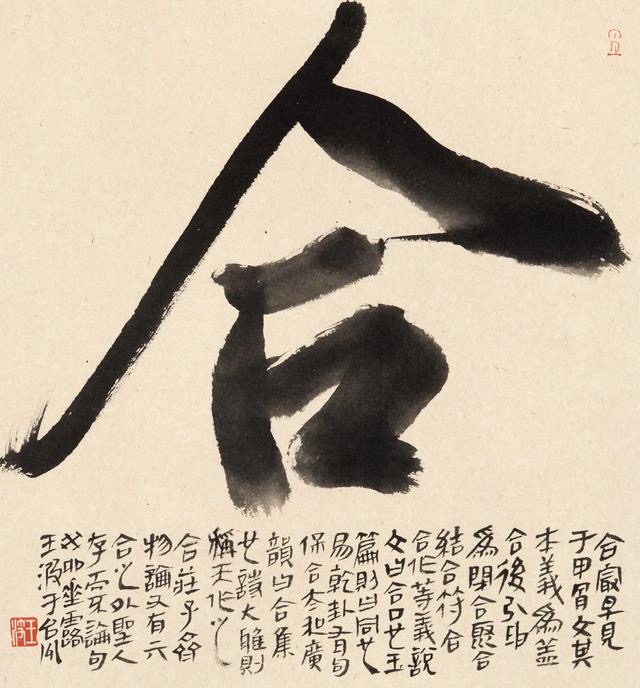 合
合㝡早見
于甲骨文其
本義為盖
合後引申
為閉合聚合
結合符合
合作等義說
文曰合口也玉
篇則曰同也
易乾卦有句
保合太和廣
韻曰合集
也詩大雅則
稱天作之
合莊子齊
物論又有六
合之外聖人
存而不論句
露
王波于台州
王波